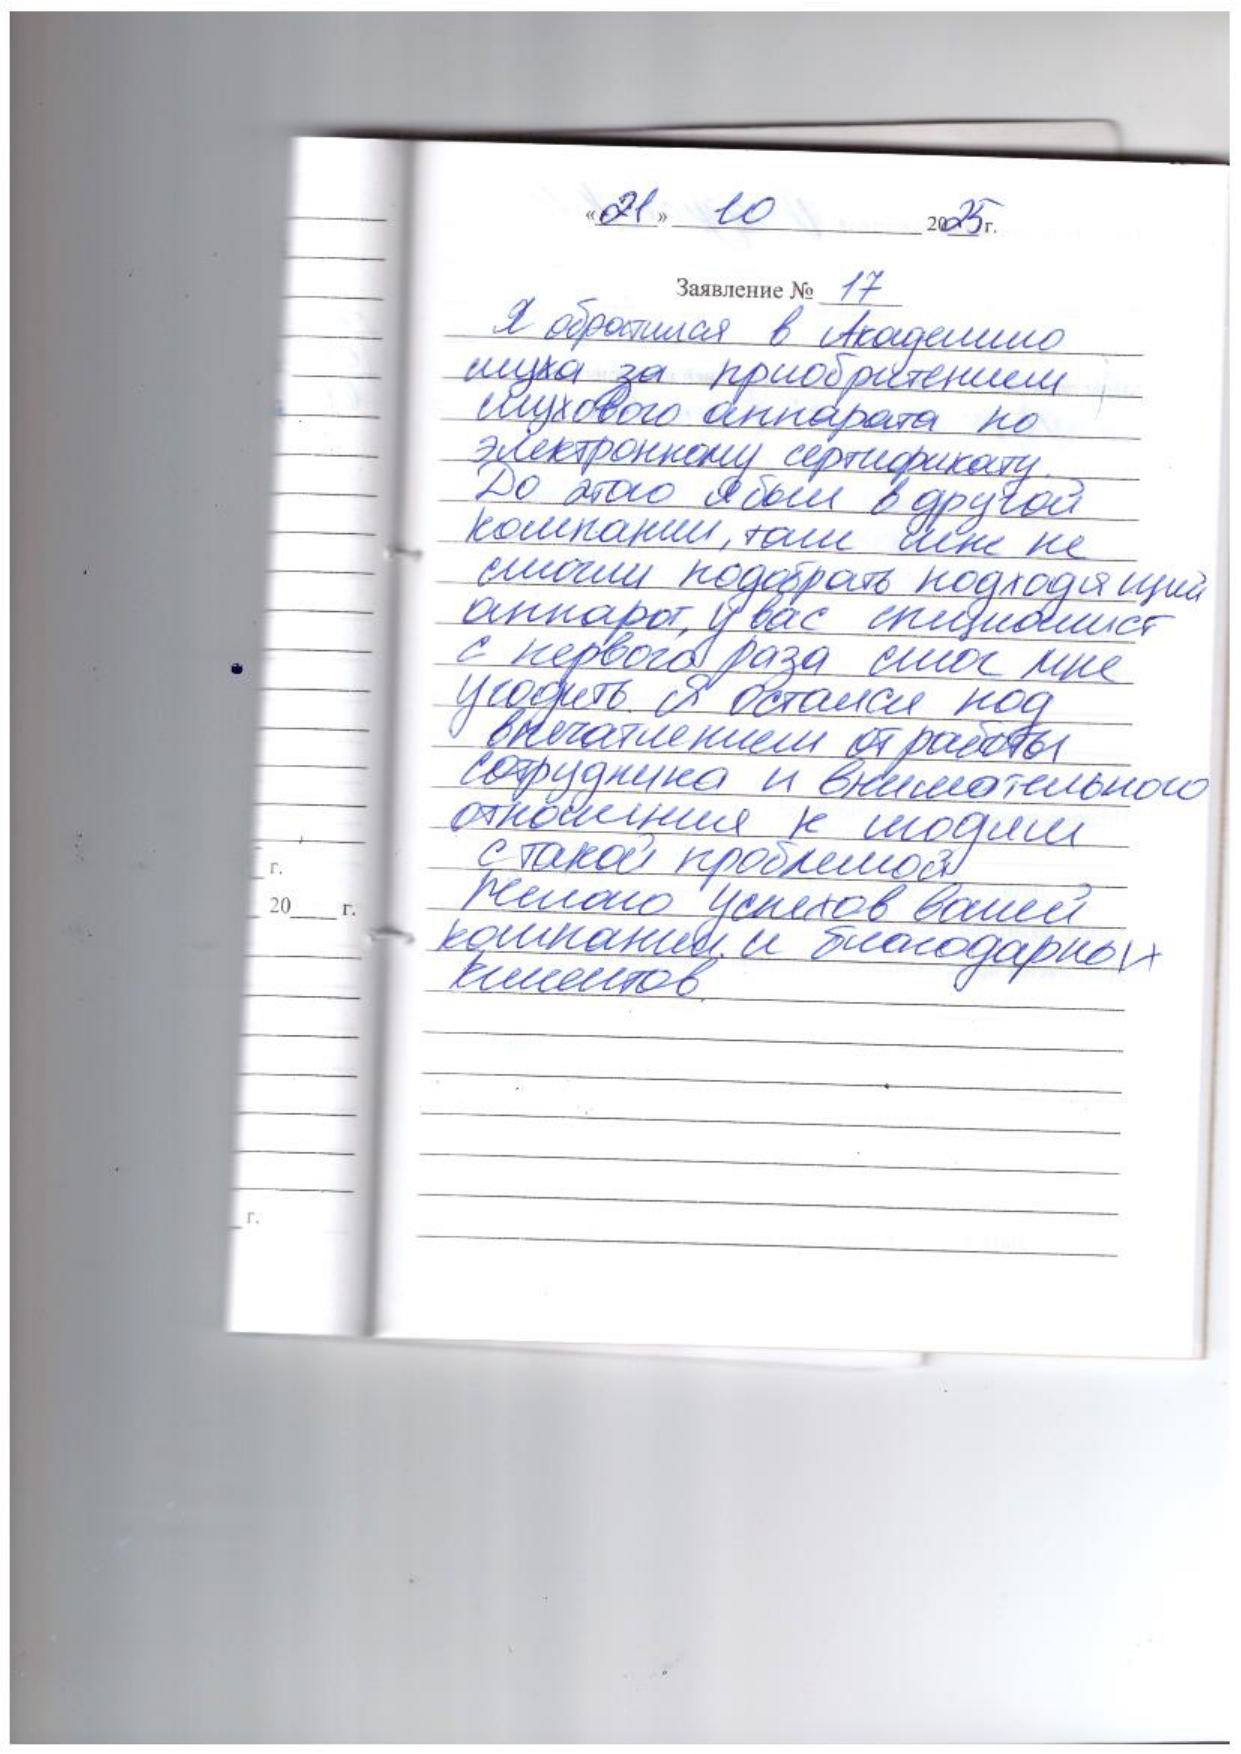 «21» 10 2025 г.
Заявление № 17
Я обратился в Академию
слуха за приобритением
слухового аппарата по
электронному сертификату.
До этого я был в другой
компании, там мне не
смогли подобрать подходящий
аппарат, у вас специалист
с первого раза смог мне
угодить. Я остался под
впечатлением от работы
сотрудника и внимательного
отношения к людям
с такой проблемой
Желаю успехов вашей
компании и благодарных
клиентов.
г.
20 г.
г.